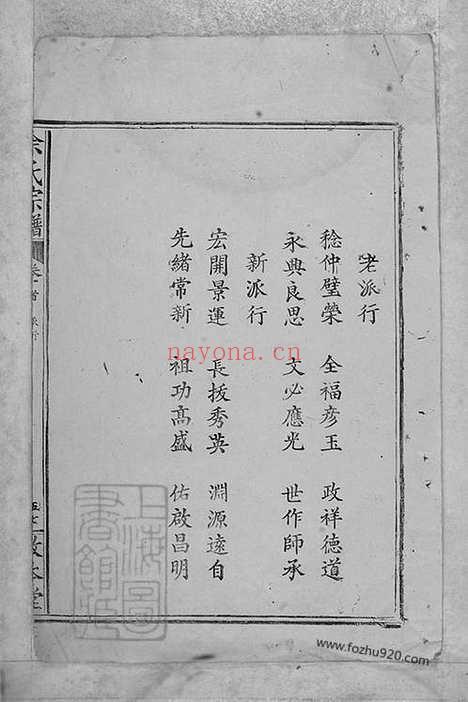 老派行
稔仲璧榮 全福彦玉 政祥德道
永典良思 文必應光 世作師承
新派行
宏開景運 長拔秀英 淵源遠自
先緒常新 祖功高盛 佑啟昌明
余氏宗譜 卷首 派行
上海圖書館藏
nayona.cn
www.fozhu920.com